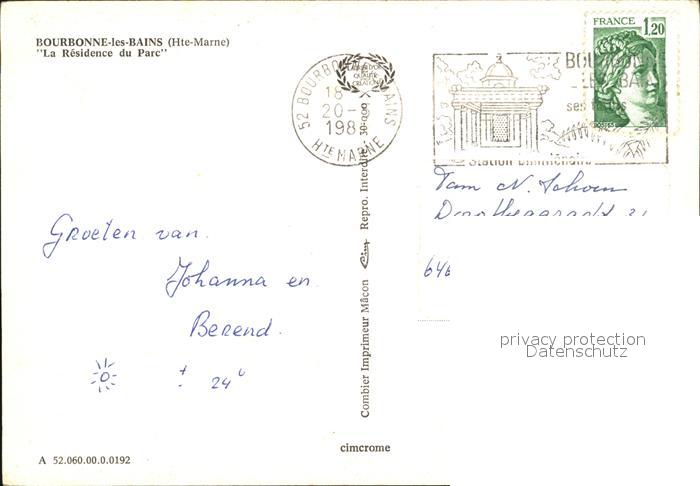 BOURBONNE-les-BAINS (Hte-Marne)
"La Résidence du Parc"
FRANCE 1,20
POSTES
52 BOURBONNE BAINS
18
20-
198
Hte MARNE
BOURBONNE
LES BA
ses
Station
Fam N. Schoen
Groeten van
Johanna en
Berend.
± 24°
646
Combier Imprimeur Mâcon Cim Repro. Interdite 30-000
privacy protection
Datenschutz
cimcrome
A 52.060.00.0.0192